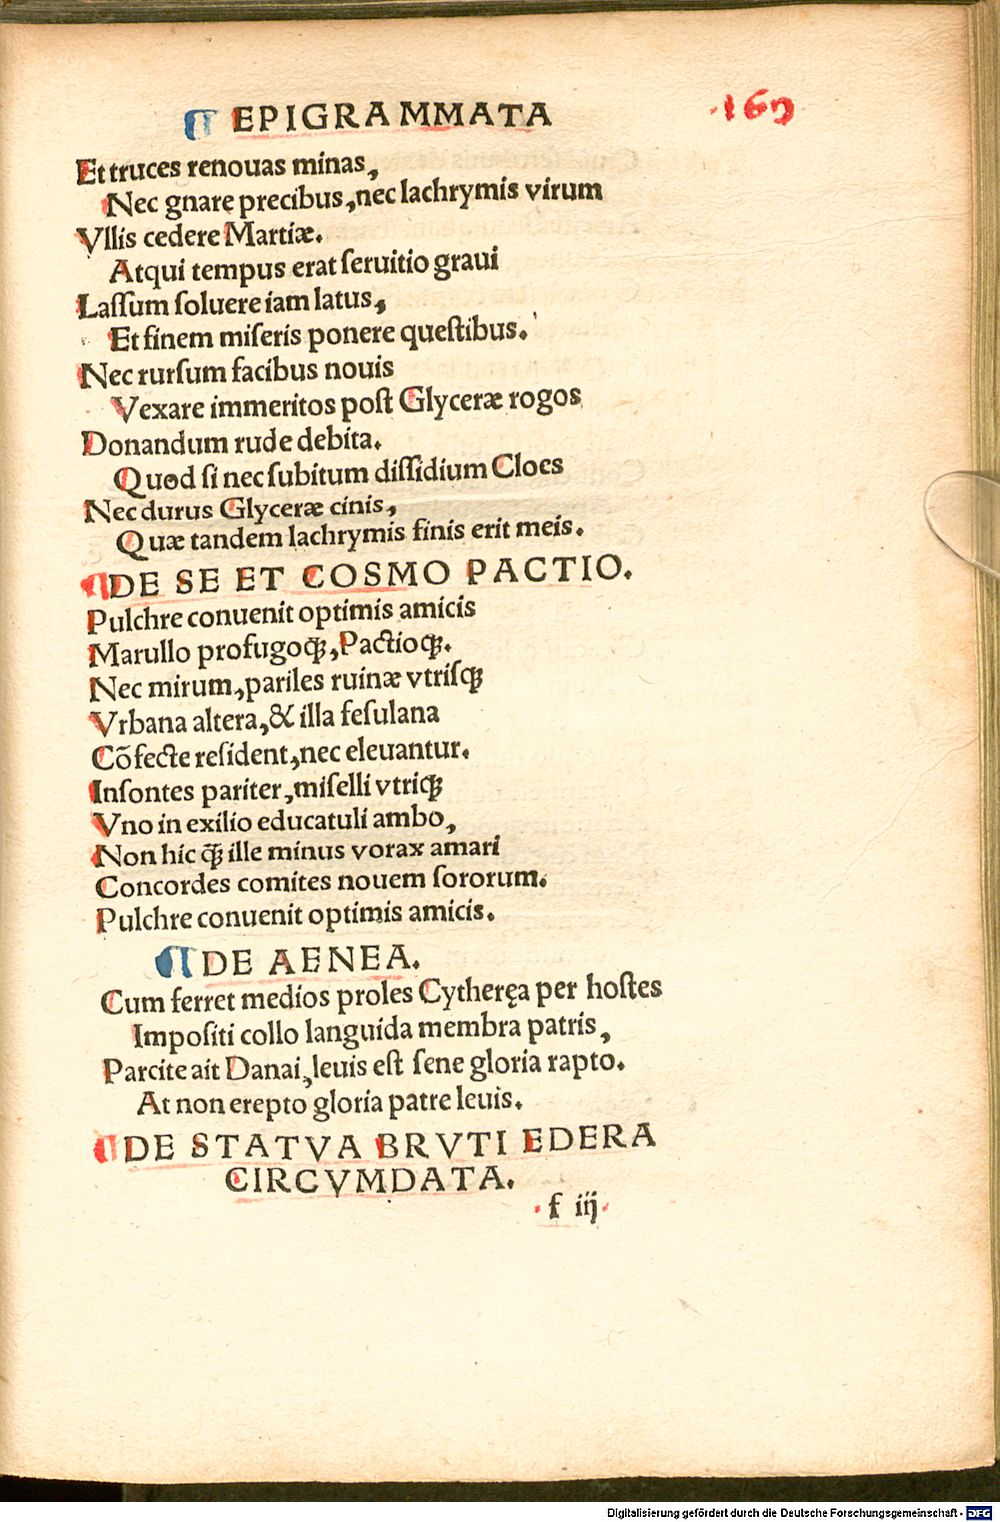 ¶ EPIGRAMMATA
·169
Et truces renouas minas,
Nec gnarę precibus, nec lachrymis virum
Vllis cedere Martiæ.
Atqui tempus erat ſeruitio graui
Laſſum ſoluere iam latus,
Et finem miſeris ponere queſtibus.
Nec rurſum facibus nouis
Vexare immeritos poſt Glyceræ rogos
Donandum rude debita.
Quod ſi nec ſubitum diſſidium Cloes
Nec durus Glyceræ cinis,
Quæ tandem lachrymis finis erit meis.
¶ DE SE ET COSMO PACTIO.
Pulchre conuenit optimis amicis
Marullo profugoꝗ̃, Pactioꝗ̃.
Nec mirum, pariles ruinæ vtriſꝗ̃
Vrbana altera, & illa feſulana
Cõfecte reſident, nec eleuantur.
Inſontes pariter, miſelli vtriꝗ̃
Vno in exilio educatuli ambo,
Non hic ꝗ̃ ille minus vorax amari
Concordes comites nouem ſororum.
Pulchre conuenit optimis amicis.
¶ DE AENEA.
Cum ferret medios proles Cytheręa per hoſtes
Impoſiti collo languida membra patris,
Parcite ait Danai, leuis eſt ſene gloria rapto.
At non erepto gloria patre leuis.
¶ DE STATVA BRVTI EDERA
CIRCVMDATA.
·f iij·
Digitalisierung gefördert durch die Deutsche Forschungsgemeinschaft - DFG